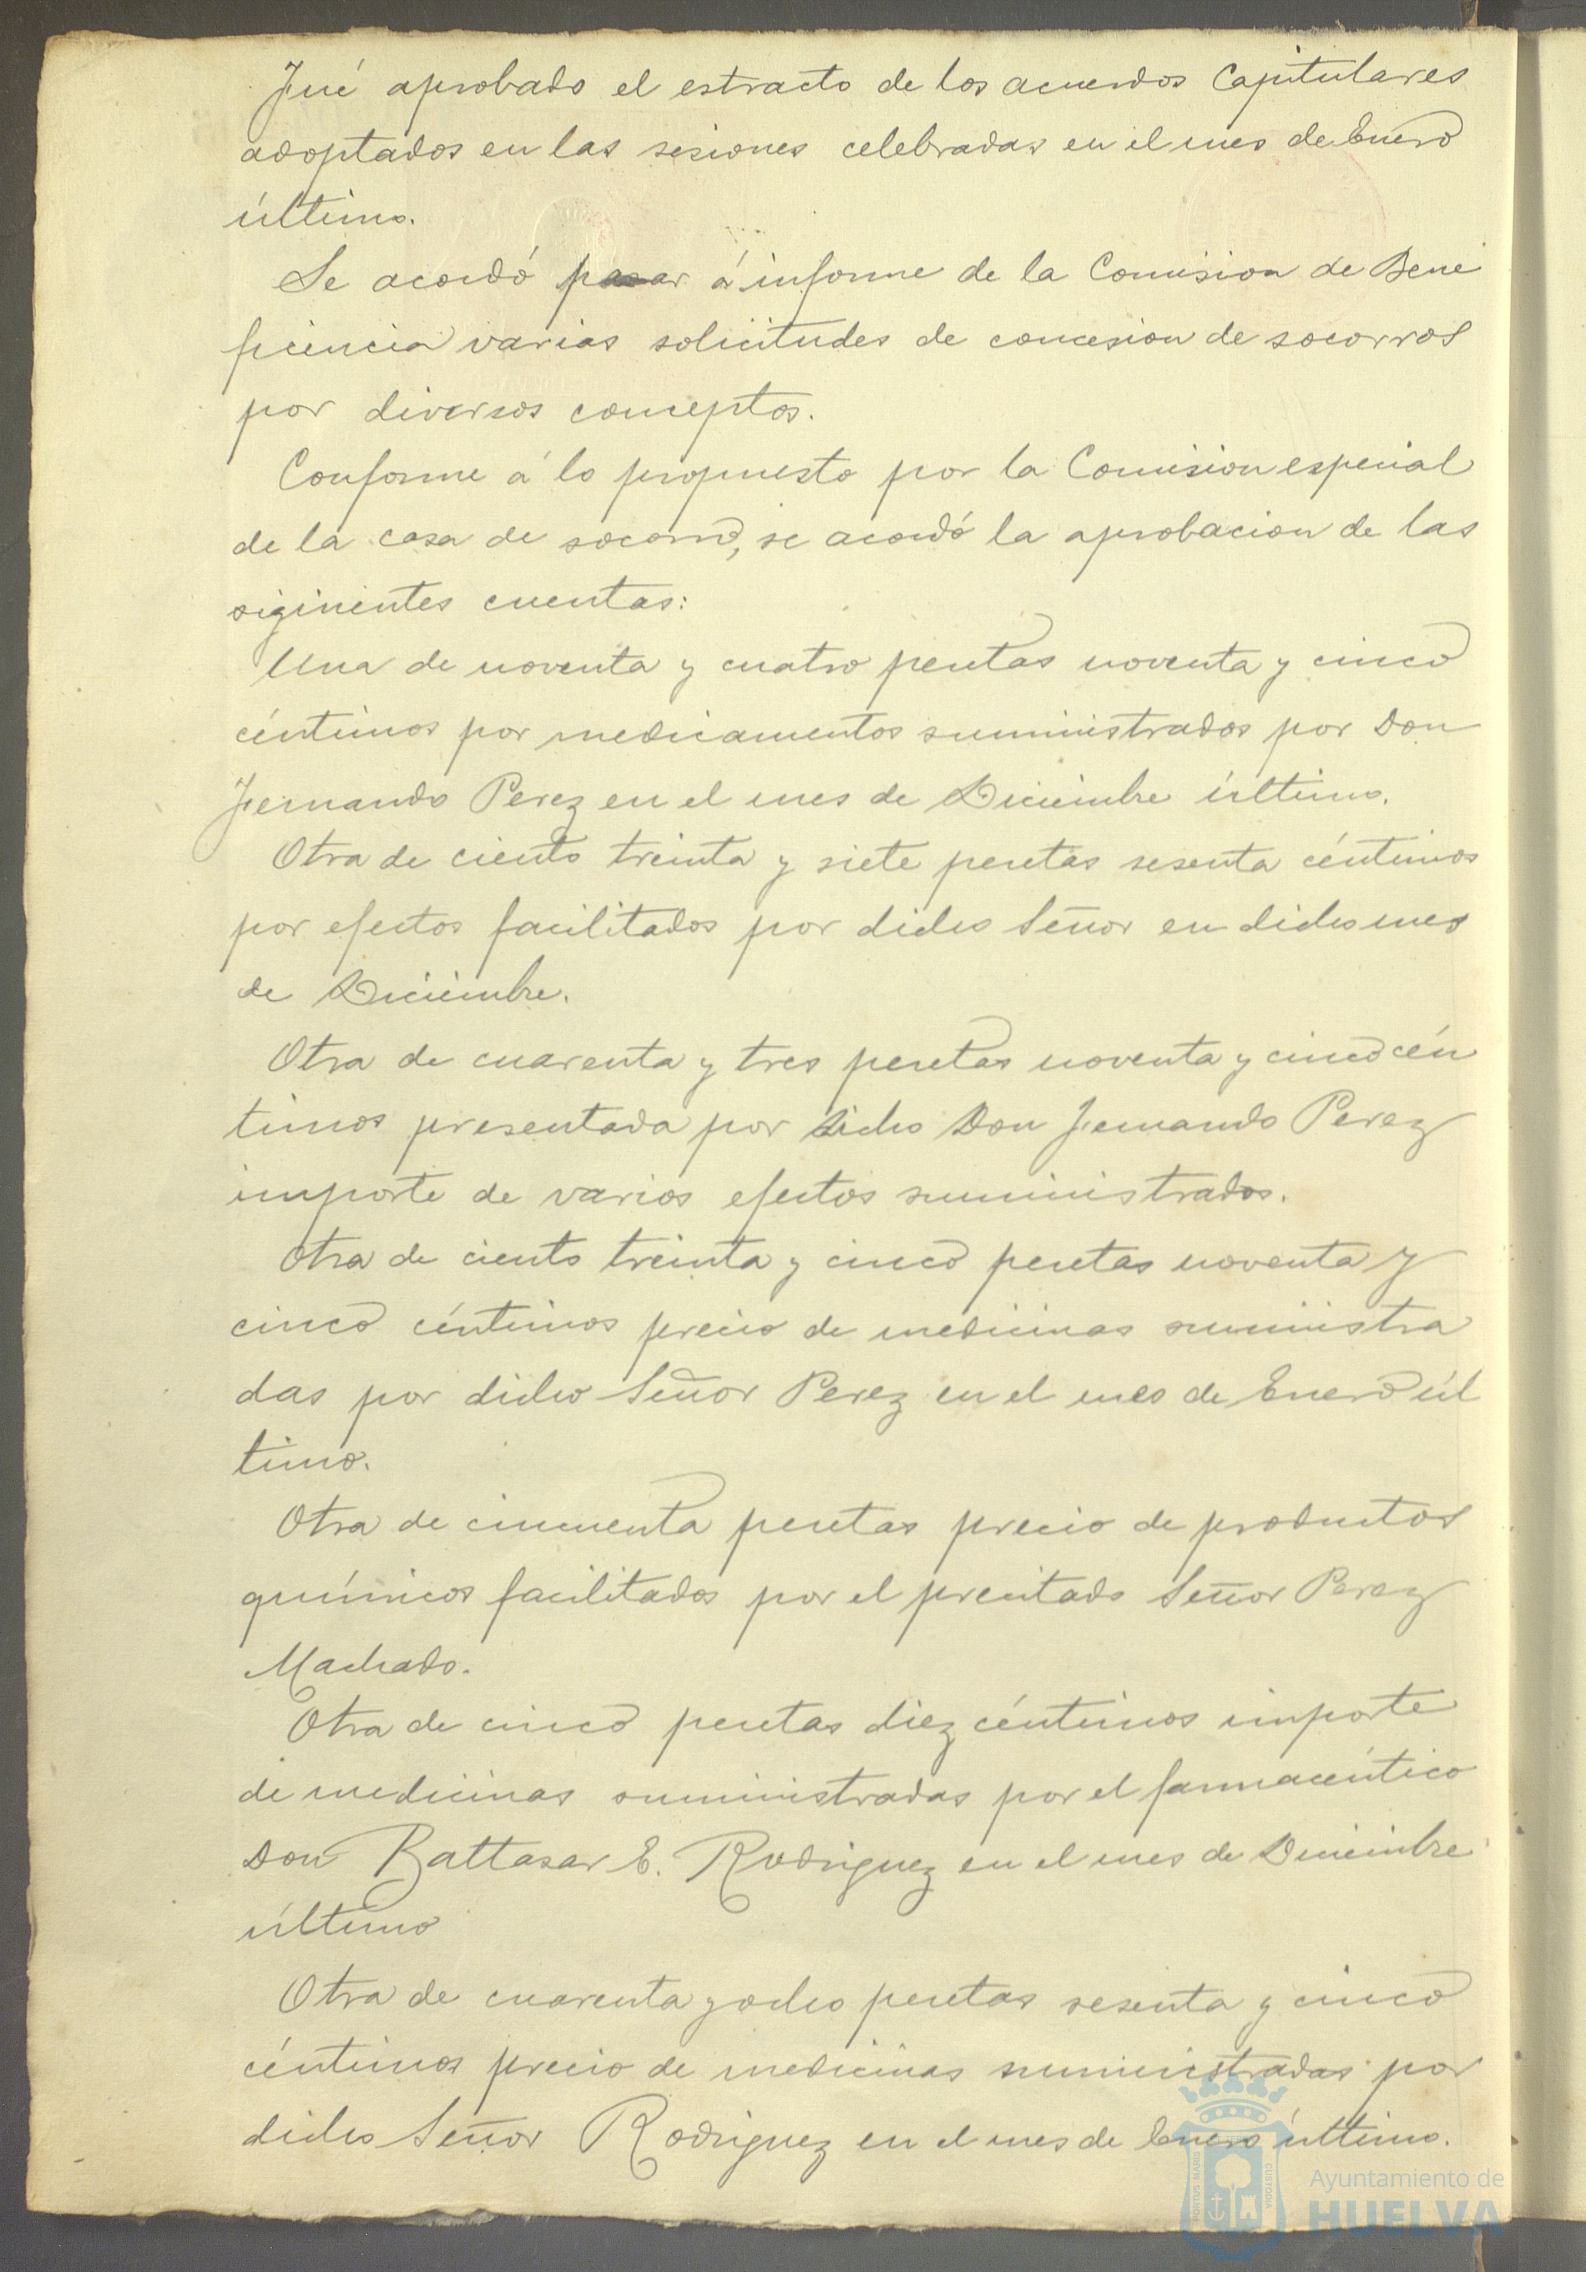 Fué aprobado el estracto de los acuerdos Capitulares
adoptados en las sesiones celebradas en el mes de Enero
último.
Se acordó pasar á informe de la Comision de Bene
ficiencia varias solicitudes de concesion de socorros
por diversos conceptos.
Conforme á lo propuesto por la Comision especial
de la casa de socorro, se acordó la aprobacion de las
siguientes cuentas:
Una de noventa y cuatro pesetas noventa y cinco
céntimos por medicamentos suministrados por Don
Fernando Perez en el mes de Diciembre último.
Otra de ciento treinta y siete pesetas sesenta céntimos
por efectos facilitados por dicho Señor en dicho mes
de Diciembre.
Otra de cuarenta y tres pesetas noventa y cinco cén
timos presentada por dicho Don Fernando Perez
importe de varios efectos suministrados.
Otra de ciento treinta y cinco pesetas noventa y
cinco céntimos precio de medicinas suministra
das por dicho Señor Perez en el mes de Enero úl
timo.
Otra de cincuenta pesetas precio de productos
químicos facilitados por el precitado Señor Perez
Machado.
Otra de cinco pesetas diez céntimos importe
de medicinas suministradas por el farmacéutico
Don Baltasar E. Rodriguez en el mes de Diciembre
último
Otra de cuarenta y ocho pesetas sesenta y cinco
céntimos precio de medicinas suministradas por
dicho Señor Rodriguez en el mes de Enero último.
PORTUS MARIS CUSTODIA
Ayuntamiento de
HUELVA